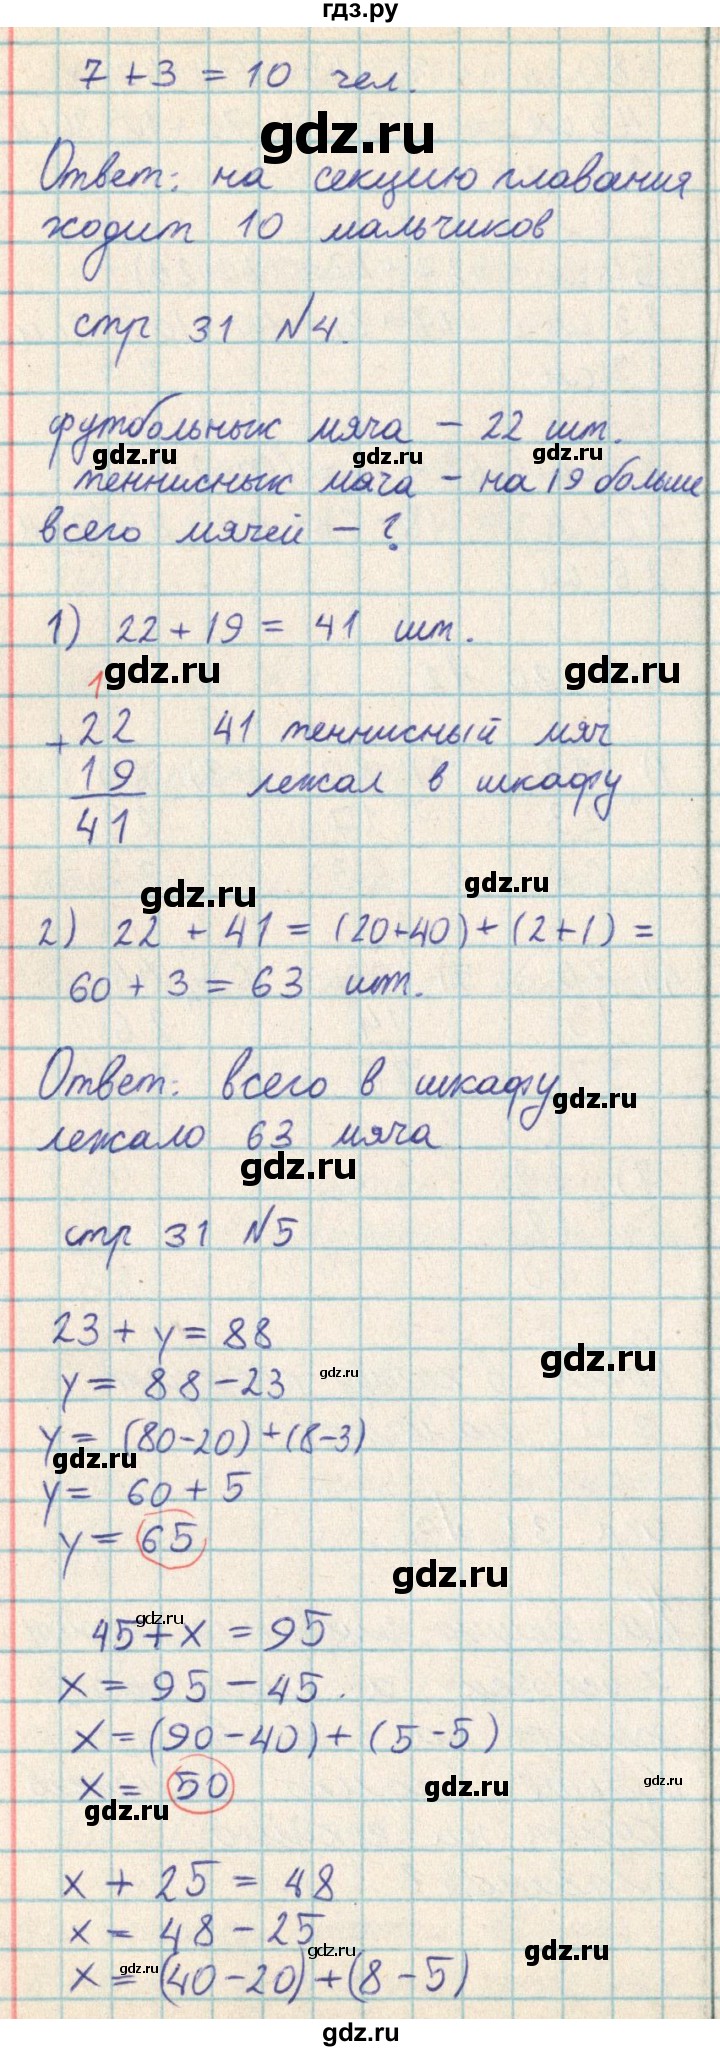 гдз.ру
7 + 3 = 10 чел.
gdz.ru
Ответ: на секцию плавания
ходит 10 мальчиков
стр 31 №4.
футбольных мяча – 22 шт.
gdz.ru gdz.ru gdz.ru
теннисных мяча – на 19 больше
всего мячей – ?
1) 22 + 19 = 41 шт.
gdz.ru gdz.ru
1
+ 22 41 теннисный мяч
19 лежал в шкафу
41
gdz.ru gdz.ru
2) 22 + 41 = (20+40) + (2+1) =
60 + 3 = 63 шт.
Ответ: всего в шкафу
gdz.ru
лежало 63 мяча
gdz.ru
стр 31 №5
23 + y = 88
gdz.ru
y = 88 – 23
gdz.ru
y = (80–20) + (8–3)
gdz.ru
y = 60 + 5
y = 65
gdz.ru
gdz.ru
45 + x = 95
x = 95 – 45.
x = (90 – 40) + (5 – 5)
x = 50
gdz.ru gdz.ru gdz.ru
x + 25 = 48
x = 48 – 25
gdz.ru gdz.ru gdz.ru
x = (40 – 20) + (8 – 5)
gdz.ru